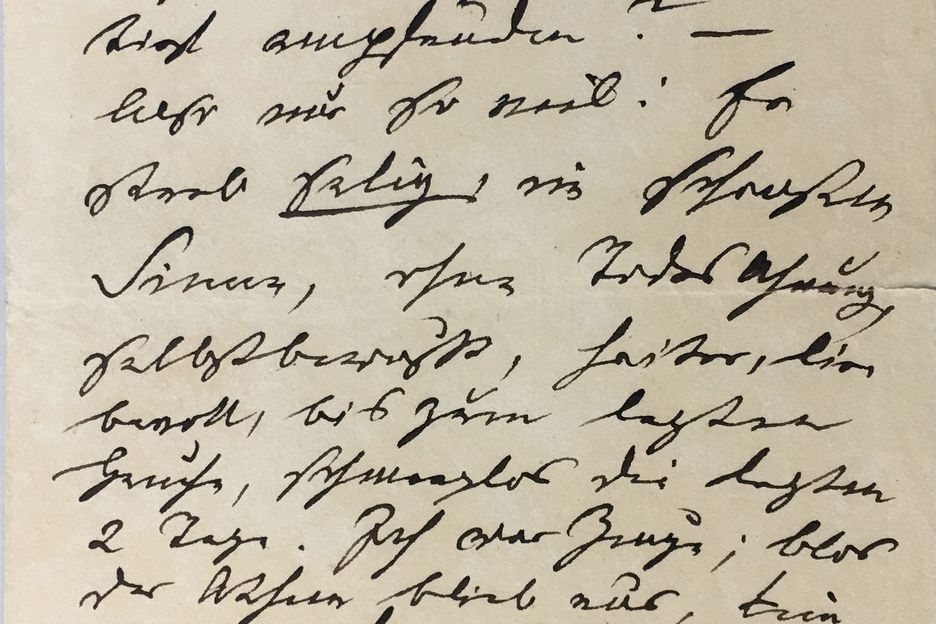 tief empfinden? —
aber nur so viel: Er
starb selig, im schönsten
Sinne, ohne Todes Ahnung,
selbstbewußt, heiter, lie
bevoll, bis zum letzten
Hauche, schmerzlos die letzten
2 Tage. Ich war Zeuge; blos
der Athem blieb aus, kein